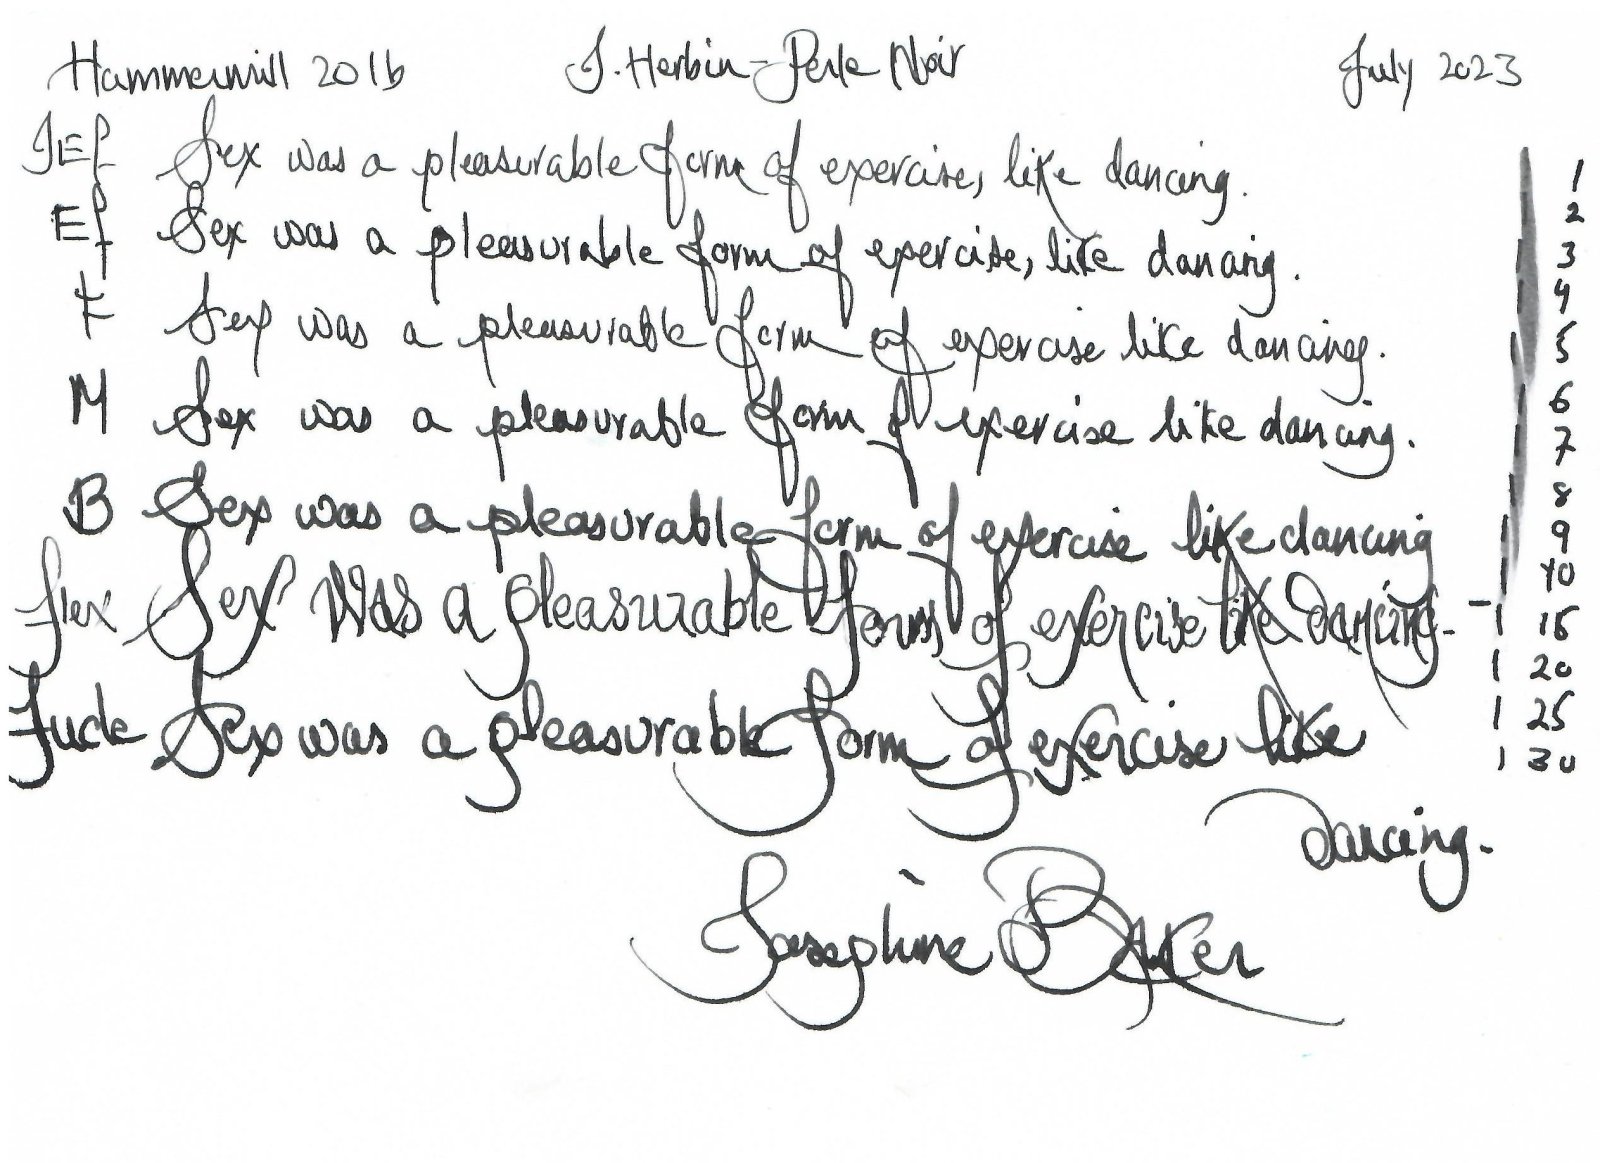 Hammermill 20lb J. Herbin - Perle Noir July 2023
JEf Sex was a pleasurable form of exercise, like dancing.
Ef Sex was a pleasurable form of exercise, like dancing.
F Sex was a pleasurable form of exercise like dancing.
M Sex was a pleasurable form of exercise like dancing.
B Sex was a pleasurable form of exercise like dancing
flex Sex was a pleasurable form of exercise like dancing.
Fude Sex was a pleasurable form of exercise like
dancing.
Josephine Baker
1
2
3
4
5
6
7
8
9
10
15
20
25
30